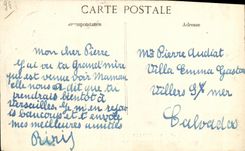 CARTE POSTALE
Correspondance
Adresse
Mon cher Pierre
J'ai vu ta Grand'mère
qui est venue voir Maman
elle nous a dit que tu
viendrais bientôt à
Versailles. Je m'en réjouis
beaucoup et t'envoie
mes meilleures amitiés
Mr Pierre Audiat
Villa Emma Gaston
Villers s/ mer
Calvados